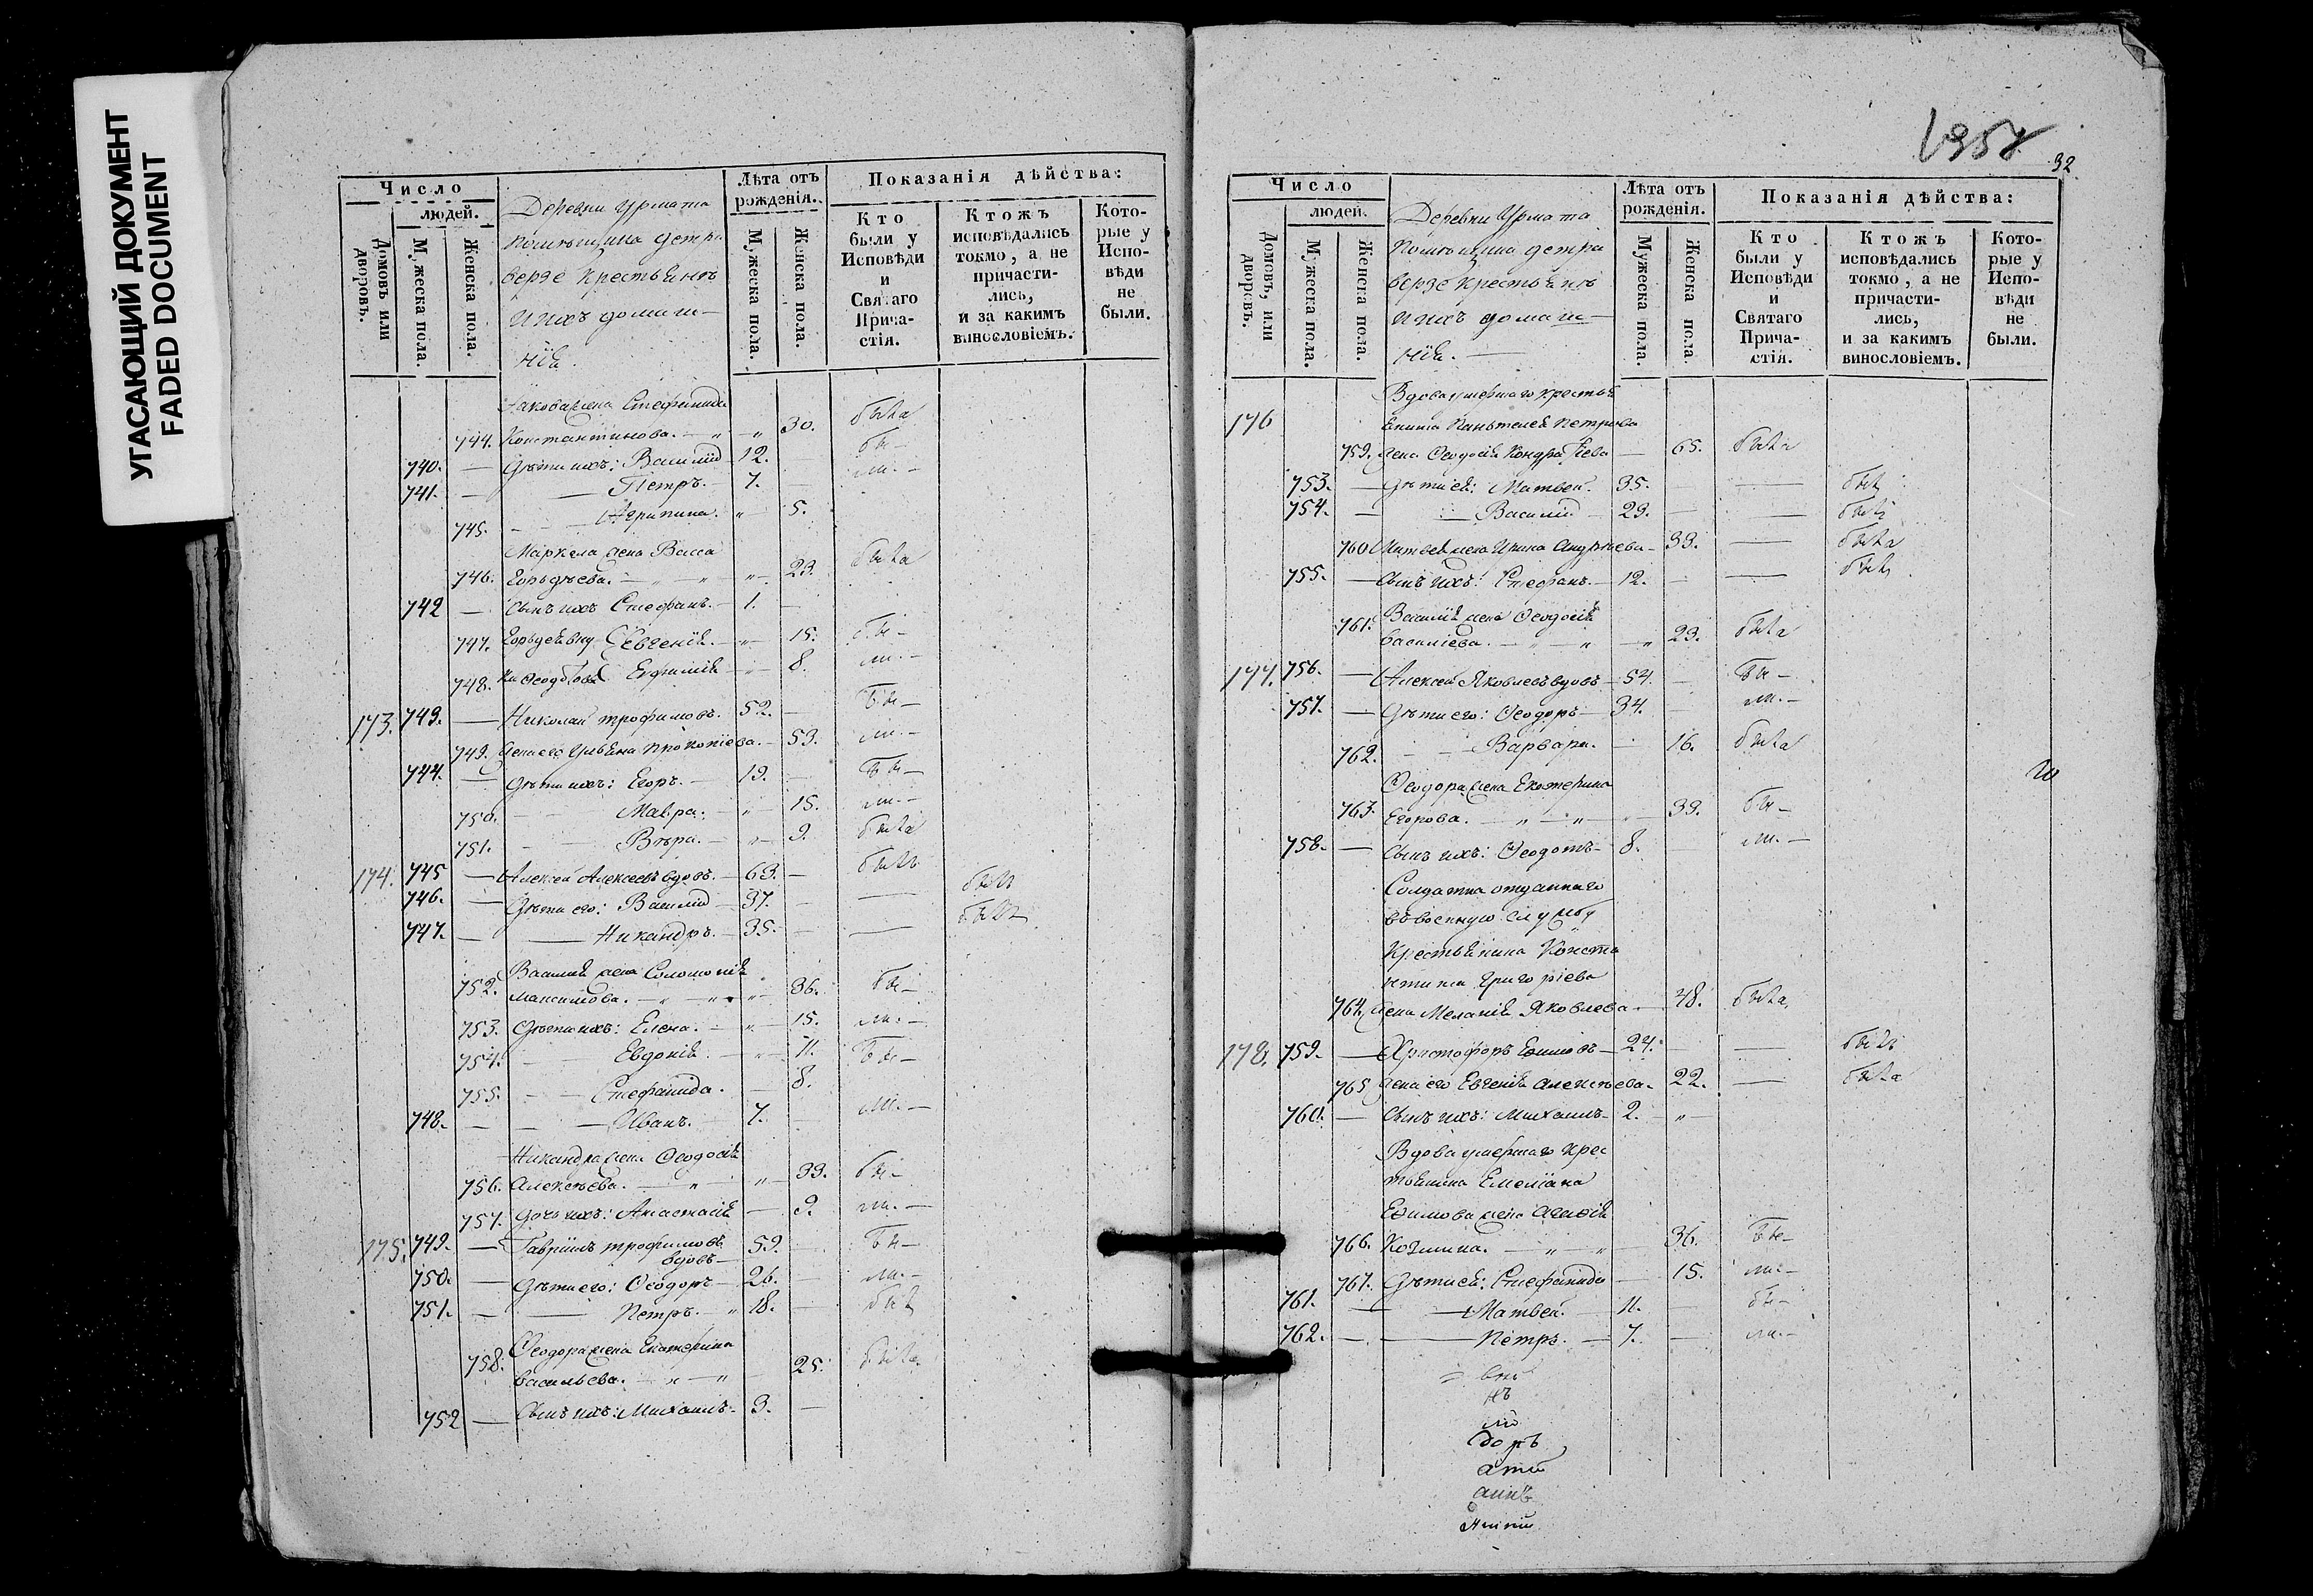 УГАСАЮЩИЙ ДОКУМЕНТ
FADED DOCUMENT
Число
людей.
Домовъ или дворовъ.
Мужеска пола.
Женска пола.
Деревни Урмата
помѣщика детра
верзе крестьянѣ
и ихъ домаш-
нія.
Лѣта отъ рожденія.
Мужеска пола.
Женска пола.
Показанія дѣйства:
Кто были у Исповѣди и Святаго Прича- стія.
Ктожъ исповѣдались токмо, а не причасти- лись, и за какимъ винословіемъ.
Кото- рые у Испо- вѣди не были.
Іакова жена Стефанида
744. Константинова. — „ — „ 30. была
740. — Дѣти ихъ: Василій 12. — бы —
741. — — Петръ. 7. — ли. —
745. — — Агрипина. „ 5.
Маркела жена Васса
746. Гордѣева. — „ — „ — „ 23. была
742 — Сынъ ихъ Стефанъ. — 1. —
747. Евгенія. — „ — 15. бы —
748. Ефимія — „ — 8. ли. —
173. 743. — Николай трофимовъ. 52. — бы —
749. Жена его Ульяна прокопіева. — 53. ли. —
744. — Дѣти ихъ: Егоръ. — 19. — бы —
750. — — Мавра. — „ 15. ли. —
751. — — Вѣра. — „ — 9. была
174. 745 — Алексей Алексеевъ вдовъ. — 63. — былъ
746. — Дѣти его: Василій — 37. — — былъ
747. — — Никандръ. — 35. — — былъ
Василія жена Соломонія
752. максимова. — „ — „ — „ 36. бы —
753. Дѣти ихъ: Елена. — „ — 15. ли. —
754. — — Евдокія. — „ 11. бы —
755. — — Стефанида. — 8.
748. — — — Иванъ. — 7. — ли. —
Никандра жена Ѳеодосія
756. Алексѣева. — „ — „ 33. бы —
757. Дочь ихъ: Анастасія — 9. ли. —
175. 749. — Гавріилъ трофимовъ
вдовъ — 59. — бы —
750. — Дѣти его: Ѳеодоръ — 26. — ли. —
751. — — Петръ. „ 18. — былъ
Ѳеодора жена Екатерина
758. васильева. — „ — „ — 25. была
752 — Сынъ ихъ: Михаилъ — 3. —
1957
32
Число
людей.
Домовъ, или дворовъ.
Мужеска пола.
Женска пола.
Деревни Урмата
помѣщика детра
верзе крестьянѣ
и ихъ домаш-
нія. —
Лѣта отъ рожденія.
Мужеска пола.
Женска пола.
Показанія дѣйства:
Кто были у Исповѣди и Святаго Прича- стія.
Ктожъ исповѣдались токмо, а не причасти- лись, и за какимъ винословіемъ.
Кото- рые у Испо- вѣди не были.
Вдова умершаго крестья
176 янина Пантелея Петрова
759. жена Ѳеодосія Кондратіева — 65. была
753. — Дѣти ея: Матвей. 35. — — былъ
754. — — Василій — 29. — — былъ
760. Матвея жена Ирина Андрѣева — 33. — была
755. — Сынъ ихъ: Стефанъ. — 12. — — былъ
Василія жена Ѳеодосія
761. василіева. — „ — „ — „ 23. была
177. 756. — Алексей Яковлевъ вдовъ — 54. — бы —
757. — Дѣти его: Ѳеодоръ — 34. — ли. —
762. — — Варвара. — 16. была
Ѳеодора жена Екатерина
763. Егорова. — „ — „ — 33. бы —
758. — Сынъ ихъ: Ѳеодотъ — 8. — ли. —
Солдатка отданнаго
въ военную службу
крестьянина Конста
нтина Григоріева
764. жена Меланія Яковлева — 48. была
178. 759. — Христофоръ Ефимовъ — 24. — — былъ
765. жена его Евгенія Алексѣева — 22. — была
760. — Сынъ ихъ: Михаилъ — 2. — „ —
Вдова умершаго крес
тьянина Емеліана
Ефимова жена Агафія
766. Козмина. — „ — „ — 36. бы —
767. Дѣти ея: Стефанида — 15. ли. —
761. — — Матвей. — 11. — бы —
762. — — Петръ. — 7. — ли. —
нъ